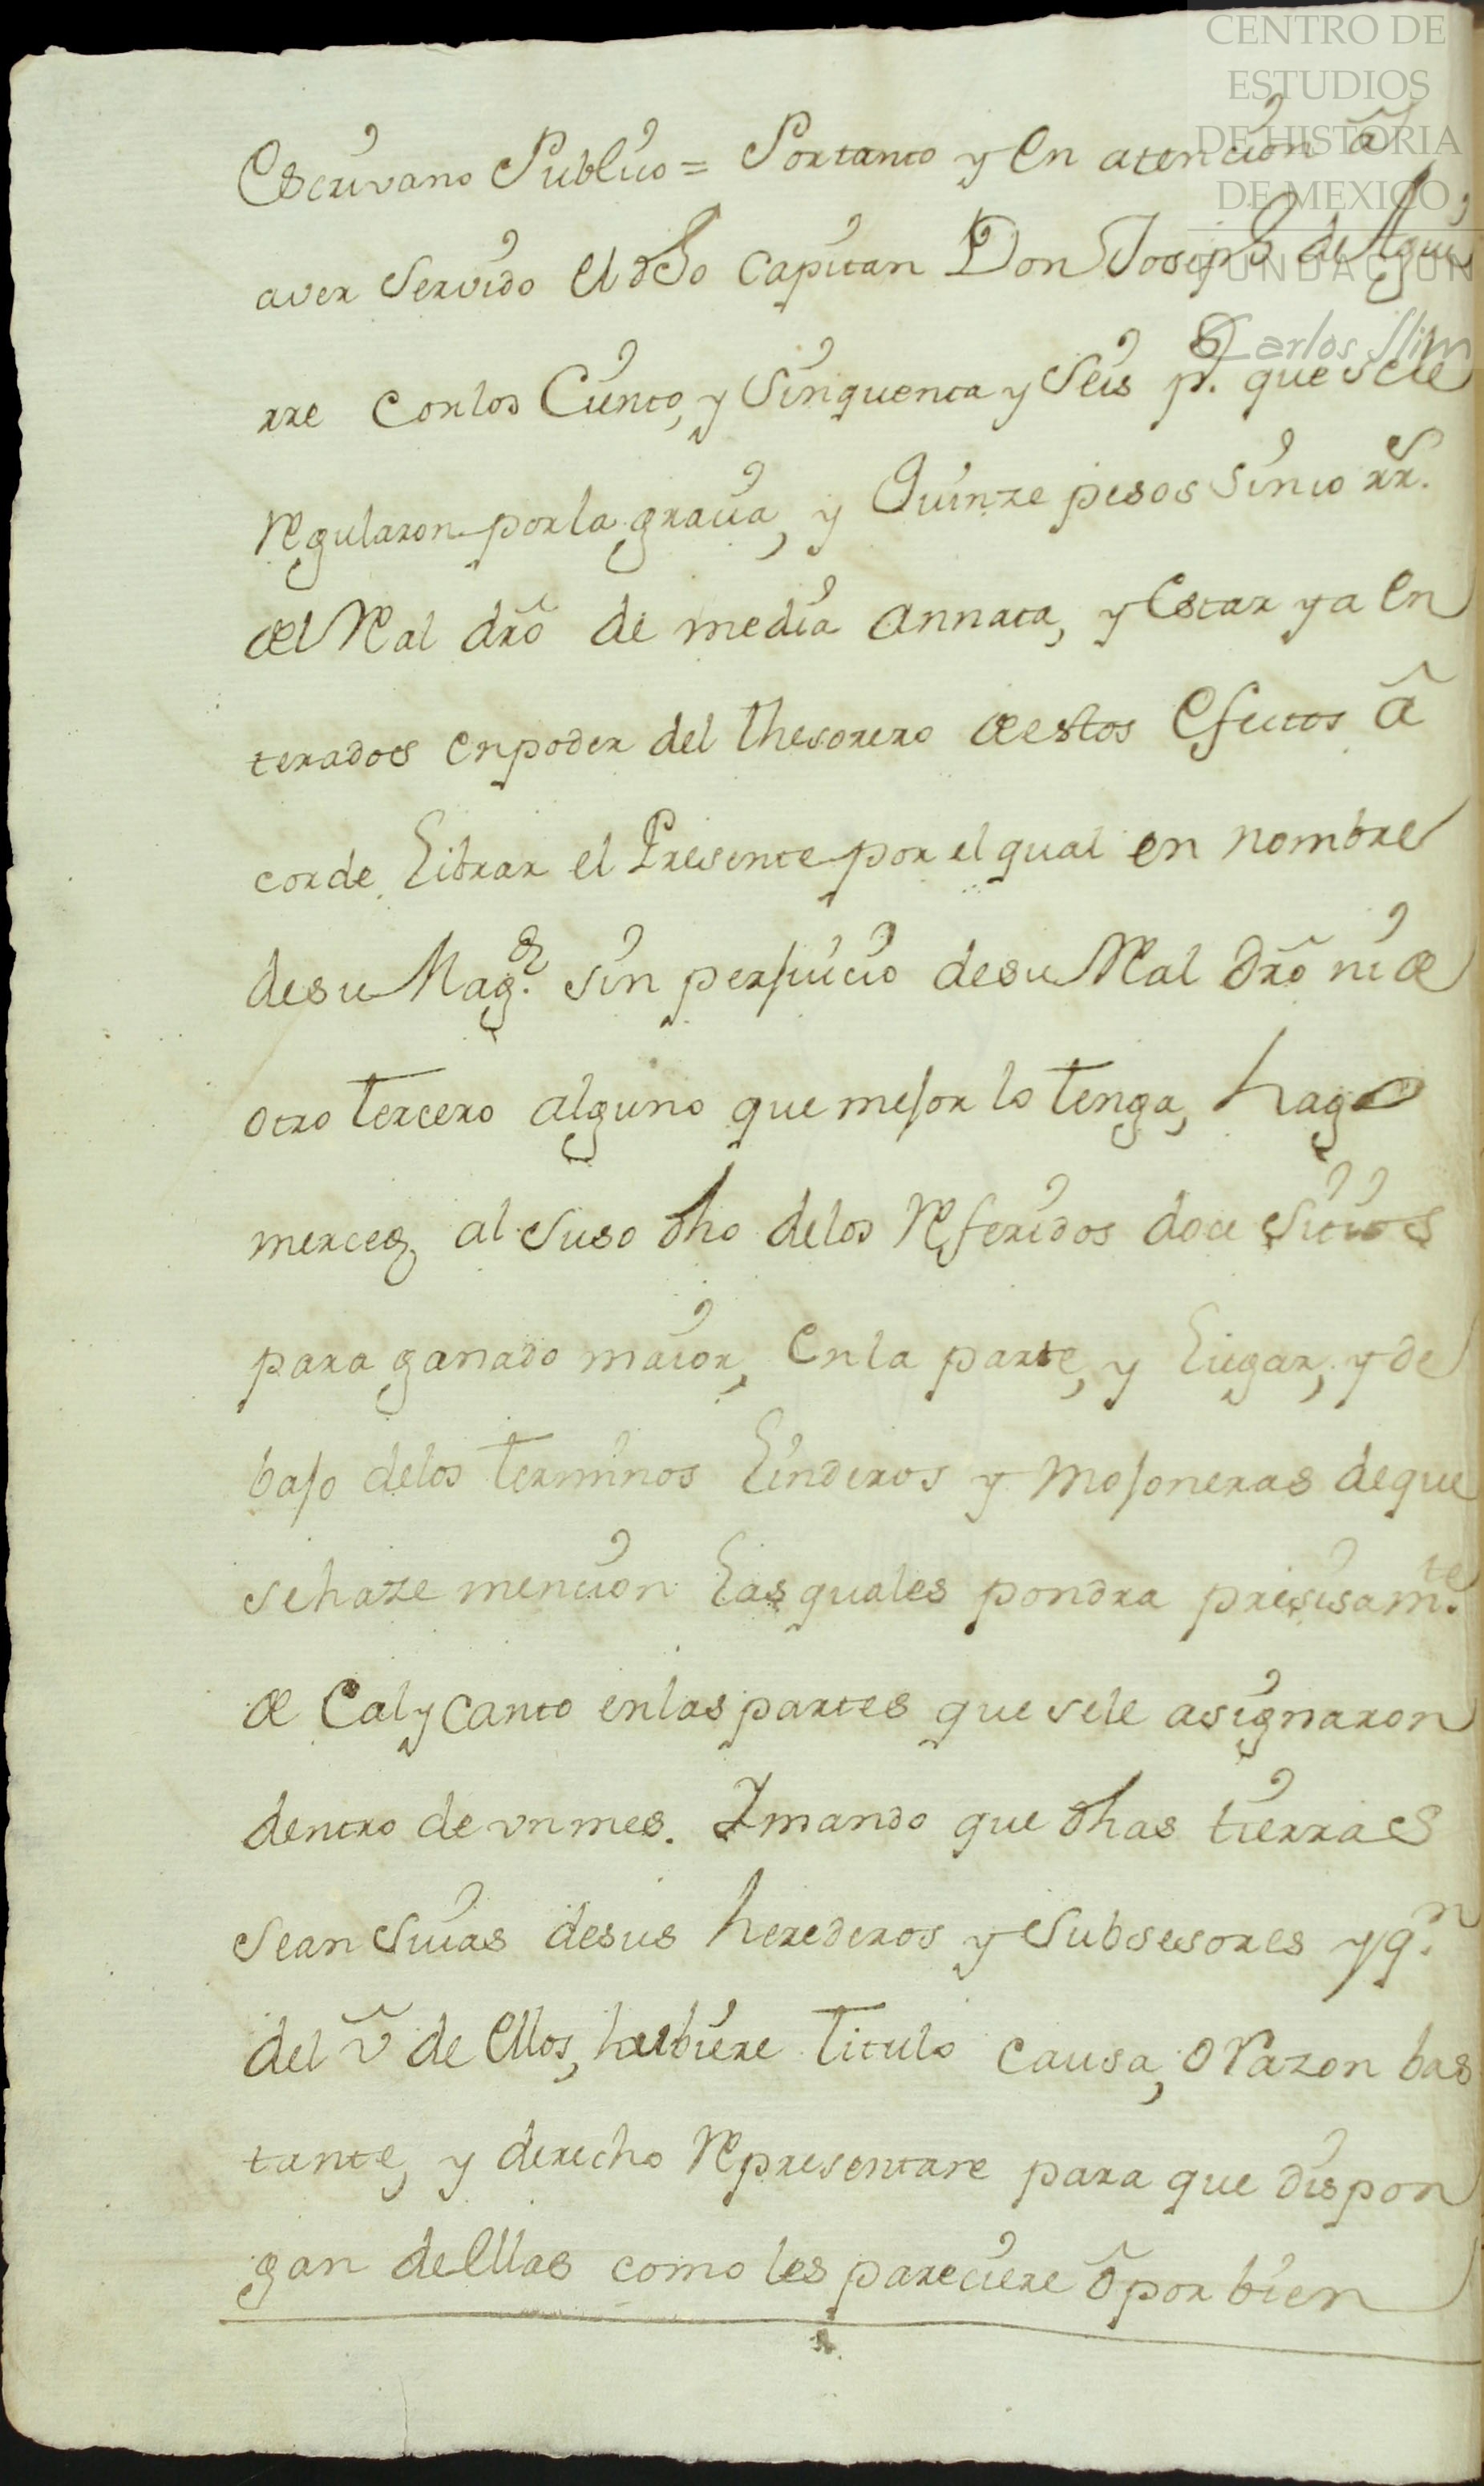 CENTRO DE
ESTUDIOS
DE HISTORIA
DE MEXICO
FUNDACION
Carlos Slim
Escrivano Publico = Portanto y En atencion â
aver servido el dho Capitan Don Joseph de Agui
rre Con los Ciento, y Sinquenta y Seis ps. que se le
Regularon por la gracia, y Quinze pesos Sinco rrs.
de el Real dro de media annata, y Estar ya En
terados en poder del thesorero de estos Efectos â
corde Librar el Presente por el qual en nombre
de su Magd. sin perjuicio de su Real dro ni de
otro tercero alguno que mejor lo tenga, hago
merced, al suso dho de los Referidos doce sitios
para ganado maior, En la parte, y Lugar, y de
bajo de los terminos Linderos y mojoneras de que
se haze mencion Las quales pondra presisamte.
de Cal y Canto en las partes que se le asignaron
dentro de vn mes. Y mando que dhas tierras
sean suias de sus herederos y subsesores y qn.
del v de Ellos, hubiere titulo causa, o Razon bas
tante, y derecho Representare para que dispon
gan de Ellas como les pareciere ô por bien